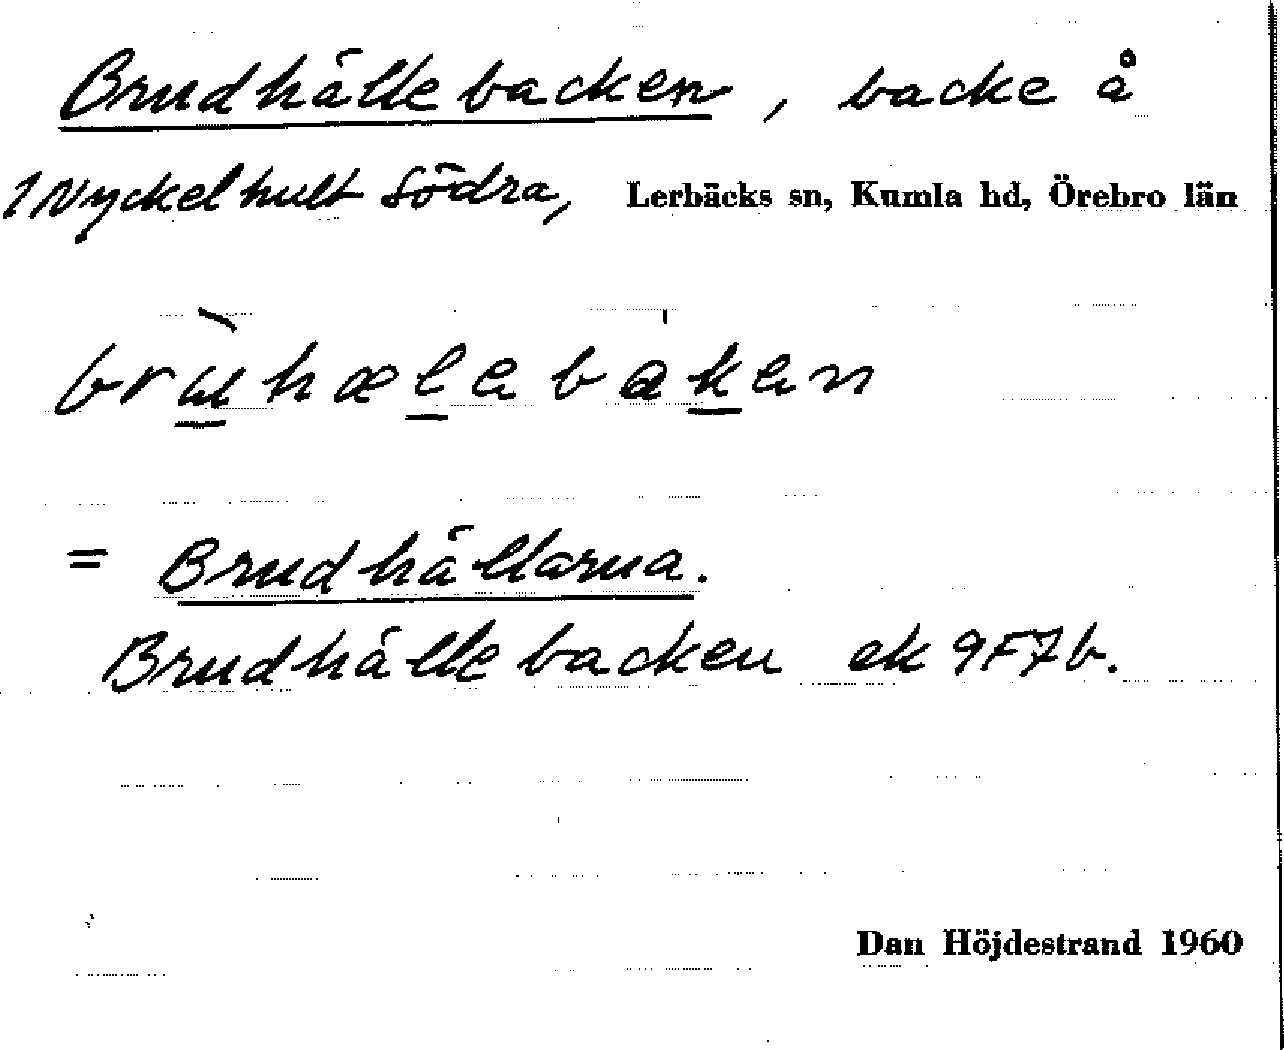 Brudhällebacken, backe å
1 Nyckelhult Södra, Lerbäcks sn, Kumla hd, Örebro län
brùhælebaken
= Brudhällarna.
Brudhällebacken ek 9F7b.
Dan Höjdestrand 1960